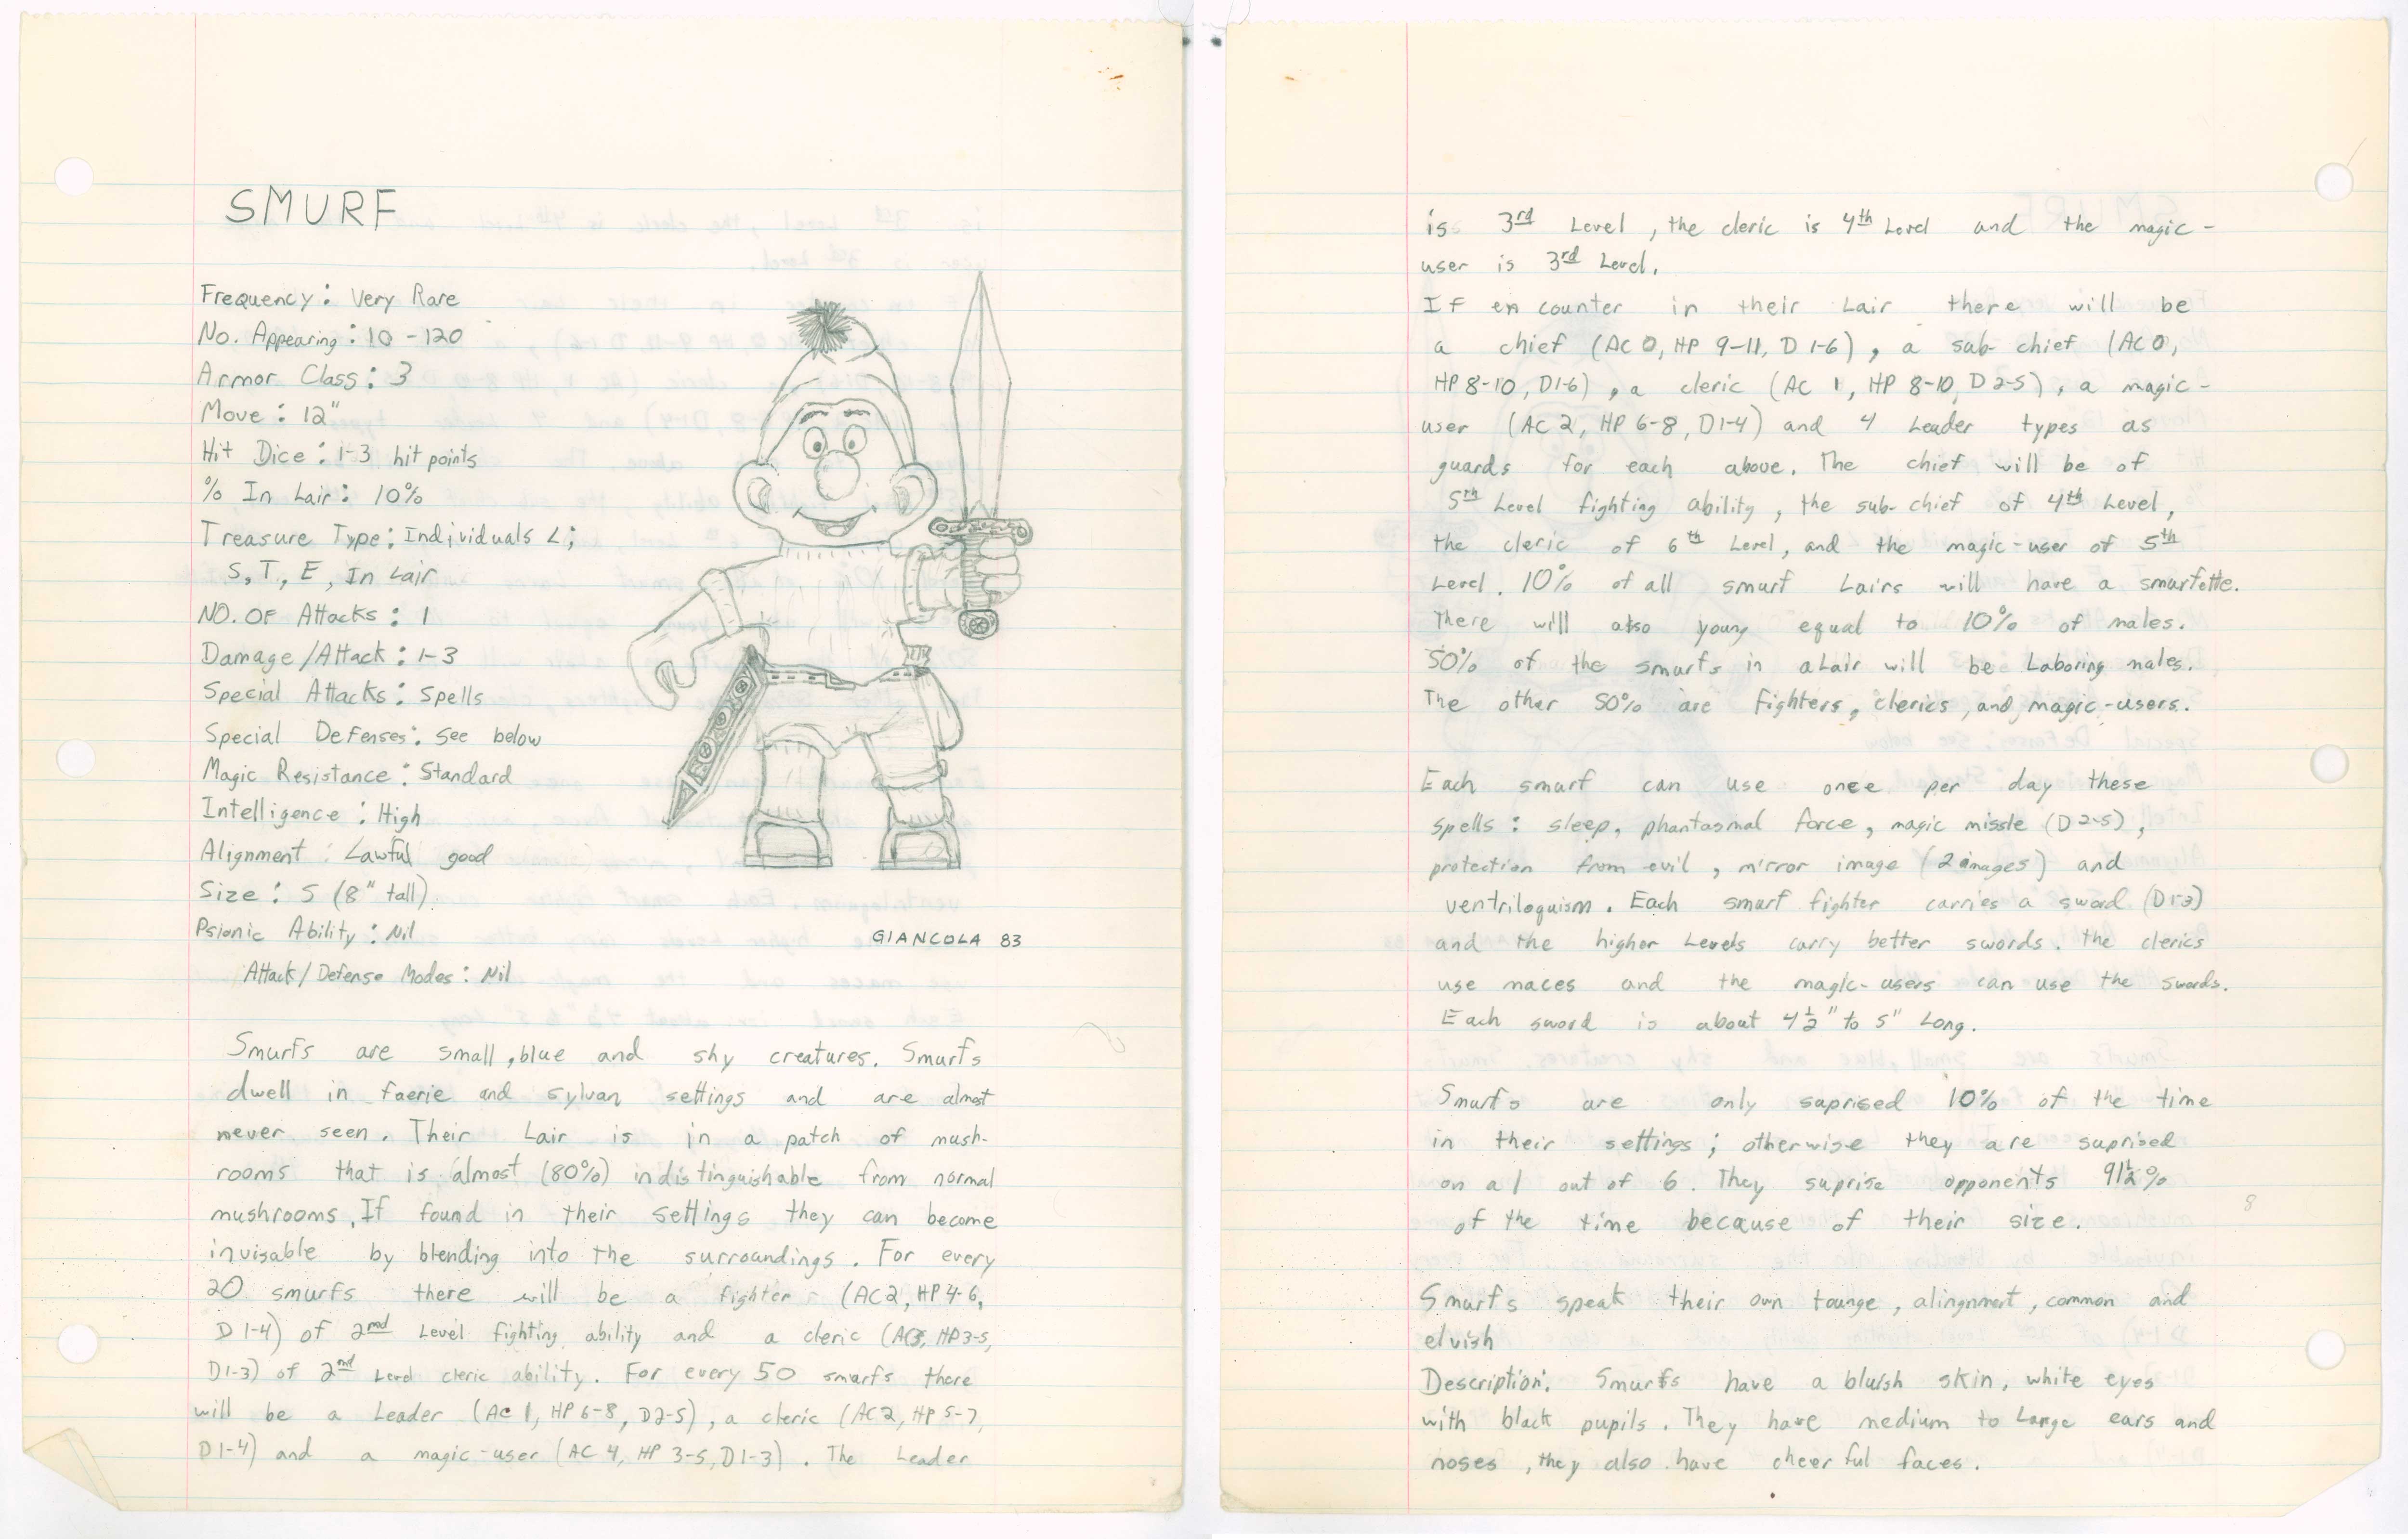 SMURF
Frequency: Very Rare
No. Appearing: 10-120
Armor Class: 3
Move: 12"
Hit Dice: 1-3 hit points
% In Lair: 10%
Treasure Type: Individuals L;
S, T, E, In Lair
NO. OF Attacks: 1
Damage/Attack: 1-3
Special Attacks: Spells
Special Defenses: See below
Magic Resistance: Standard
Intelligence: High
Alignment: Lawful good
Size: S (8" tall)
Psionic Ability: Nil
Attack/Defense Modes: Nil
GIANCOLA 83
Smurfs are small, blue and shy creatures. Smurfs
dwell in faerie and sylvan settings and are almost
never seen. Their Lair is in a patch of mush-
rooms that is almost (80%) indistinguishable from normal
mushrooms. If found in their settings they can become
invisable by blending into the surroundings. For every
20 smurfs there will be a fighter (AC2, HP 4-6,
D 1-4) of 2nd Level fighting ability and a cleric (AC3, HP3-5,
D1-3) of 2nd Level cleric ability. For every 50 smurfs there
will be a Leader (AC 1, HP 6-8, D2-5), a cleric (AC2, HP 5-7,
D1-4) and a magic-user (AC 4, HP 3-5, D1-3). The Leader
is 3rd Level, the cleric is 4th Level and the magic-
user is 3rd Level.
If en counter in their Lair there will be
a chief (AC 0, HP 9-11, D 1-6), a sub-chief (AC 0,
HP 8-10, D1-6), a cleric (AC 1, HP 8-10, D 2-5), a magic-
user (AC 2, HP 6-8, D1-4) and 4 Leader types as
guards for each above. The chief will be of
5th Level fighting ability, the sub-chief of 4th Level,
the cleric of 6th Level, and the magic-user of 5th
Level. 10% of all smurf Lairs will have a smurfette.
There will also young equal to 10% of males.
50% of the smurfs in a Lair will be Laboring males.
The other 50% are Fighters, clerics, and magic-users.
Each smurf can use once per day these
spells: sleep, phantasmal force, magic missle (D 2-5),
protection from evil, mirror image (2 images) and
ventriloquism. Each smurf fighter carries a sword (D1-3)
and the higher Levels carry better swords. The clerics
use maces and the magic-users can use the swords.
Each sword is about 4½" to 5" Long.
Smurfs are only suprised 10% of the time
in their settings; otherwise they are suprised
on a 1 out of 6. They suprise opponents 91½%
of the time because of their size.
Smurfs speak their own tounge, alingnment, common and
elvish
Description: Smurfs have a bluish skin, white eyes
with black pupils. They have medium to Large ears and
noses, they also have cheerful faces.